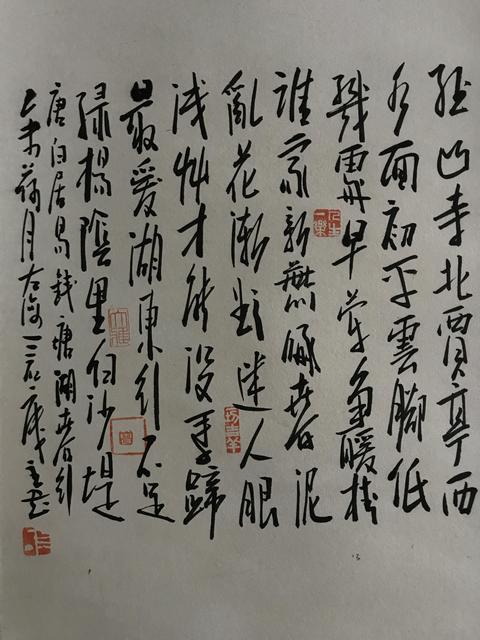 孤山寺北賈亭西
水面初平雲脚低
幾處早鶯争暖樹
誰家新燕啄春泥
亂花漸欲迷人眼
浅艸才能没馬蹄
最愛湖東行不足
緑楊陰里白沙堤
唐白居易錢塘湖春行
乙未荷月